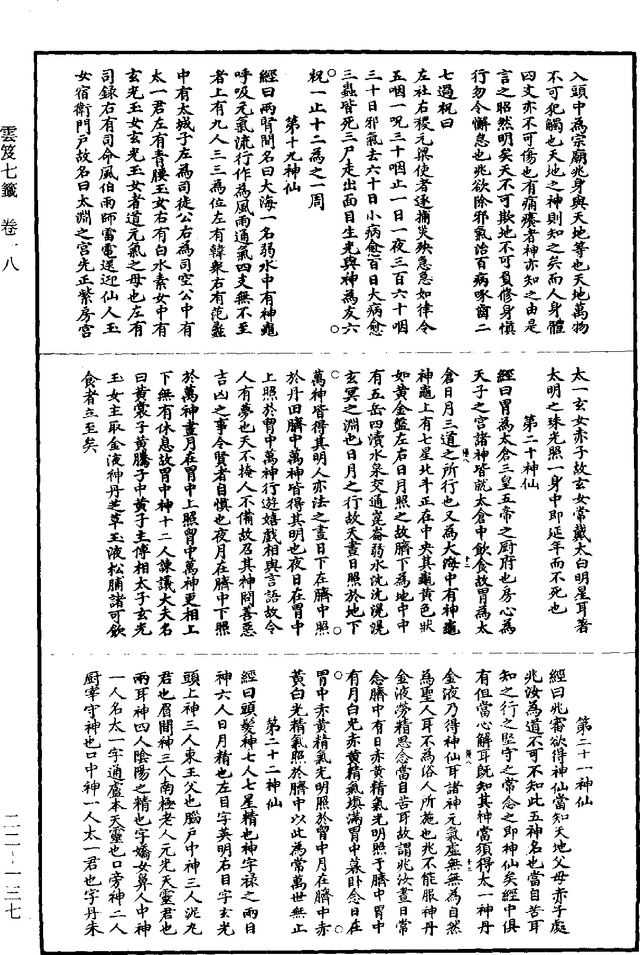 雲笈七籤 卷一八
入頭中為宗廟兆身與天地等也天地萬物
不可犯觸也天地之神則知之矣而人身體
四支亦不可傷也有痛癢者神亦知之由是
言之昭然明矣天不可欺地不可負修身慎
行勿令懈息也兆欲除邪氣治百病啄齒二
七過祝曰
左社右稷元梁使者逐捕災殃急急如律令
五咽一呪三十咽止一日一夜三百六十咽
三十日邪氣去六十日小病愈百日大病愈
三蟲皆死三尸走出面目生光與神為友六
祝一止十二為之一周
第十九神仙
經曰兩腎間名曰大海一名弱水中有神龜
呼吸元氣流行作為風雨通氣四支無不至
者上有九人三三為位左有韓衆右有范蠡
中有太城子左為司徒公右為司空公中有
太一君左有青腰玉女右有白水素女中有
玄光玉女玄光玉女者道元氣之母也左有
司錄右有司命風伯雨師雷電送迎仙人玉
女宿衛門戶故名曰太淵之宮先正紫房宮
太一玄女赤子故玄女常戴太白明星耳著
太明之珠光照一身中即延年而不死也
第二十神仙
經曰胃為太倉三皇五帝之厨府也房心為
天子之宮諸神皆就太倉中飲食故胃為太
倉日月三道之所行也又為大海中有神龜
神龜上有七星北斗正在中央其龜黃色狀
如黃金盤左右日月照之故臍下為地中中
有五岳四瀆水泉交通崑崙弱水沈沈滉滉
玄冥之淵也日月之行故天晝日照於地下
萬神皆得其明人亦法之晝日下在臍中照
於丹田臍中萬神皆得其明也夜日在胃中
上照於胷中萬神行遊嬉戲相與言語故令
人有夢也天不掩人不備故及其神問善惡
吉凶之事令賢者自慎也夜月在臍中下照
於萬神晝月在胃中上照胷中萬神更相上
下無有休息故胃中神十二人諫議大夫名
曰黃裳子黃騰子中黃子主傅相太子玄光
玉女主取金液神丹芝草玉液松脯諸可飲
食者立至矣
第二十一神仙
經曰兆審欲得神仙當知天地父母赤子處
兆汝為道不可不知此五神名也當自苦耳
知之行之堅守之常念之即神仙矣經中俱
有但當心解耳旣知其神當須得太一神丹
金液乃得神仙耳諸神元氣虛無無為自然
為聖人耳不為俗人所施也兆不能服神丹
金液勞精思念當自苦耳故謂兆汝晝日常
念臍中有日赤黃精氣光明照于臍中胃中
有月白光赤黃精氣填滿胃中暮卧念日在
胃中赤黃精氣光明照於胷中月在臍中赤
黃白光精氣照於臍中以此為常萬世無止
第二十二神仙
經曰頭髮神七人七星精也神字祿之兩目
神六人日月精也左目字英明右目字玄光
頭上神三人東王父也腦戶中神三人泥丸
君也眉間神三人南極老人元光天靈君也
兩耳神四人陰陽之精也字嬌女鼻人中神
一人名太一字通盧本天靈也口旁神二人
厨宰守神也口中神一人太一君也字丹朱
二二—一三七